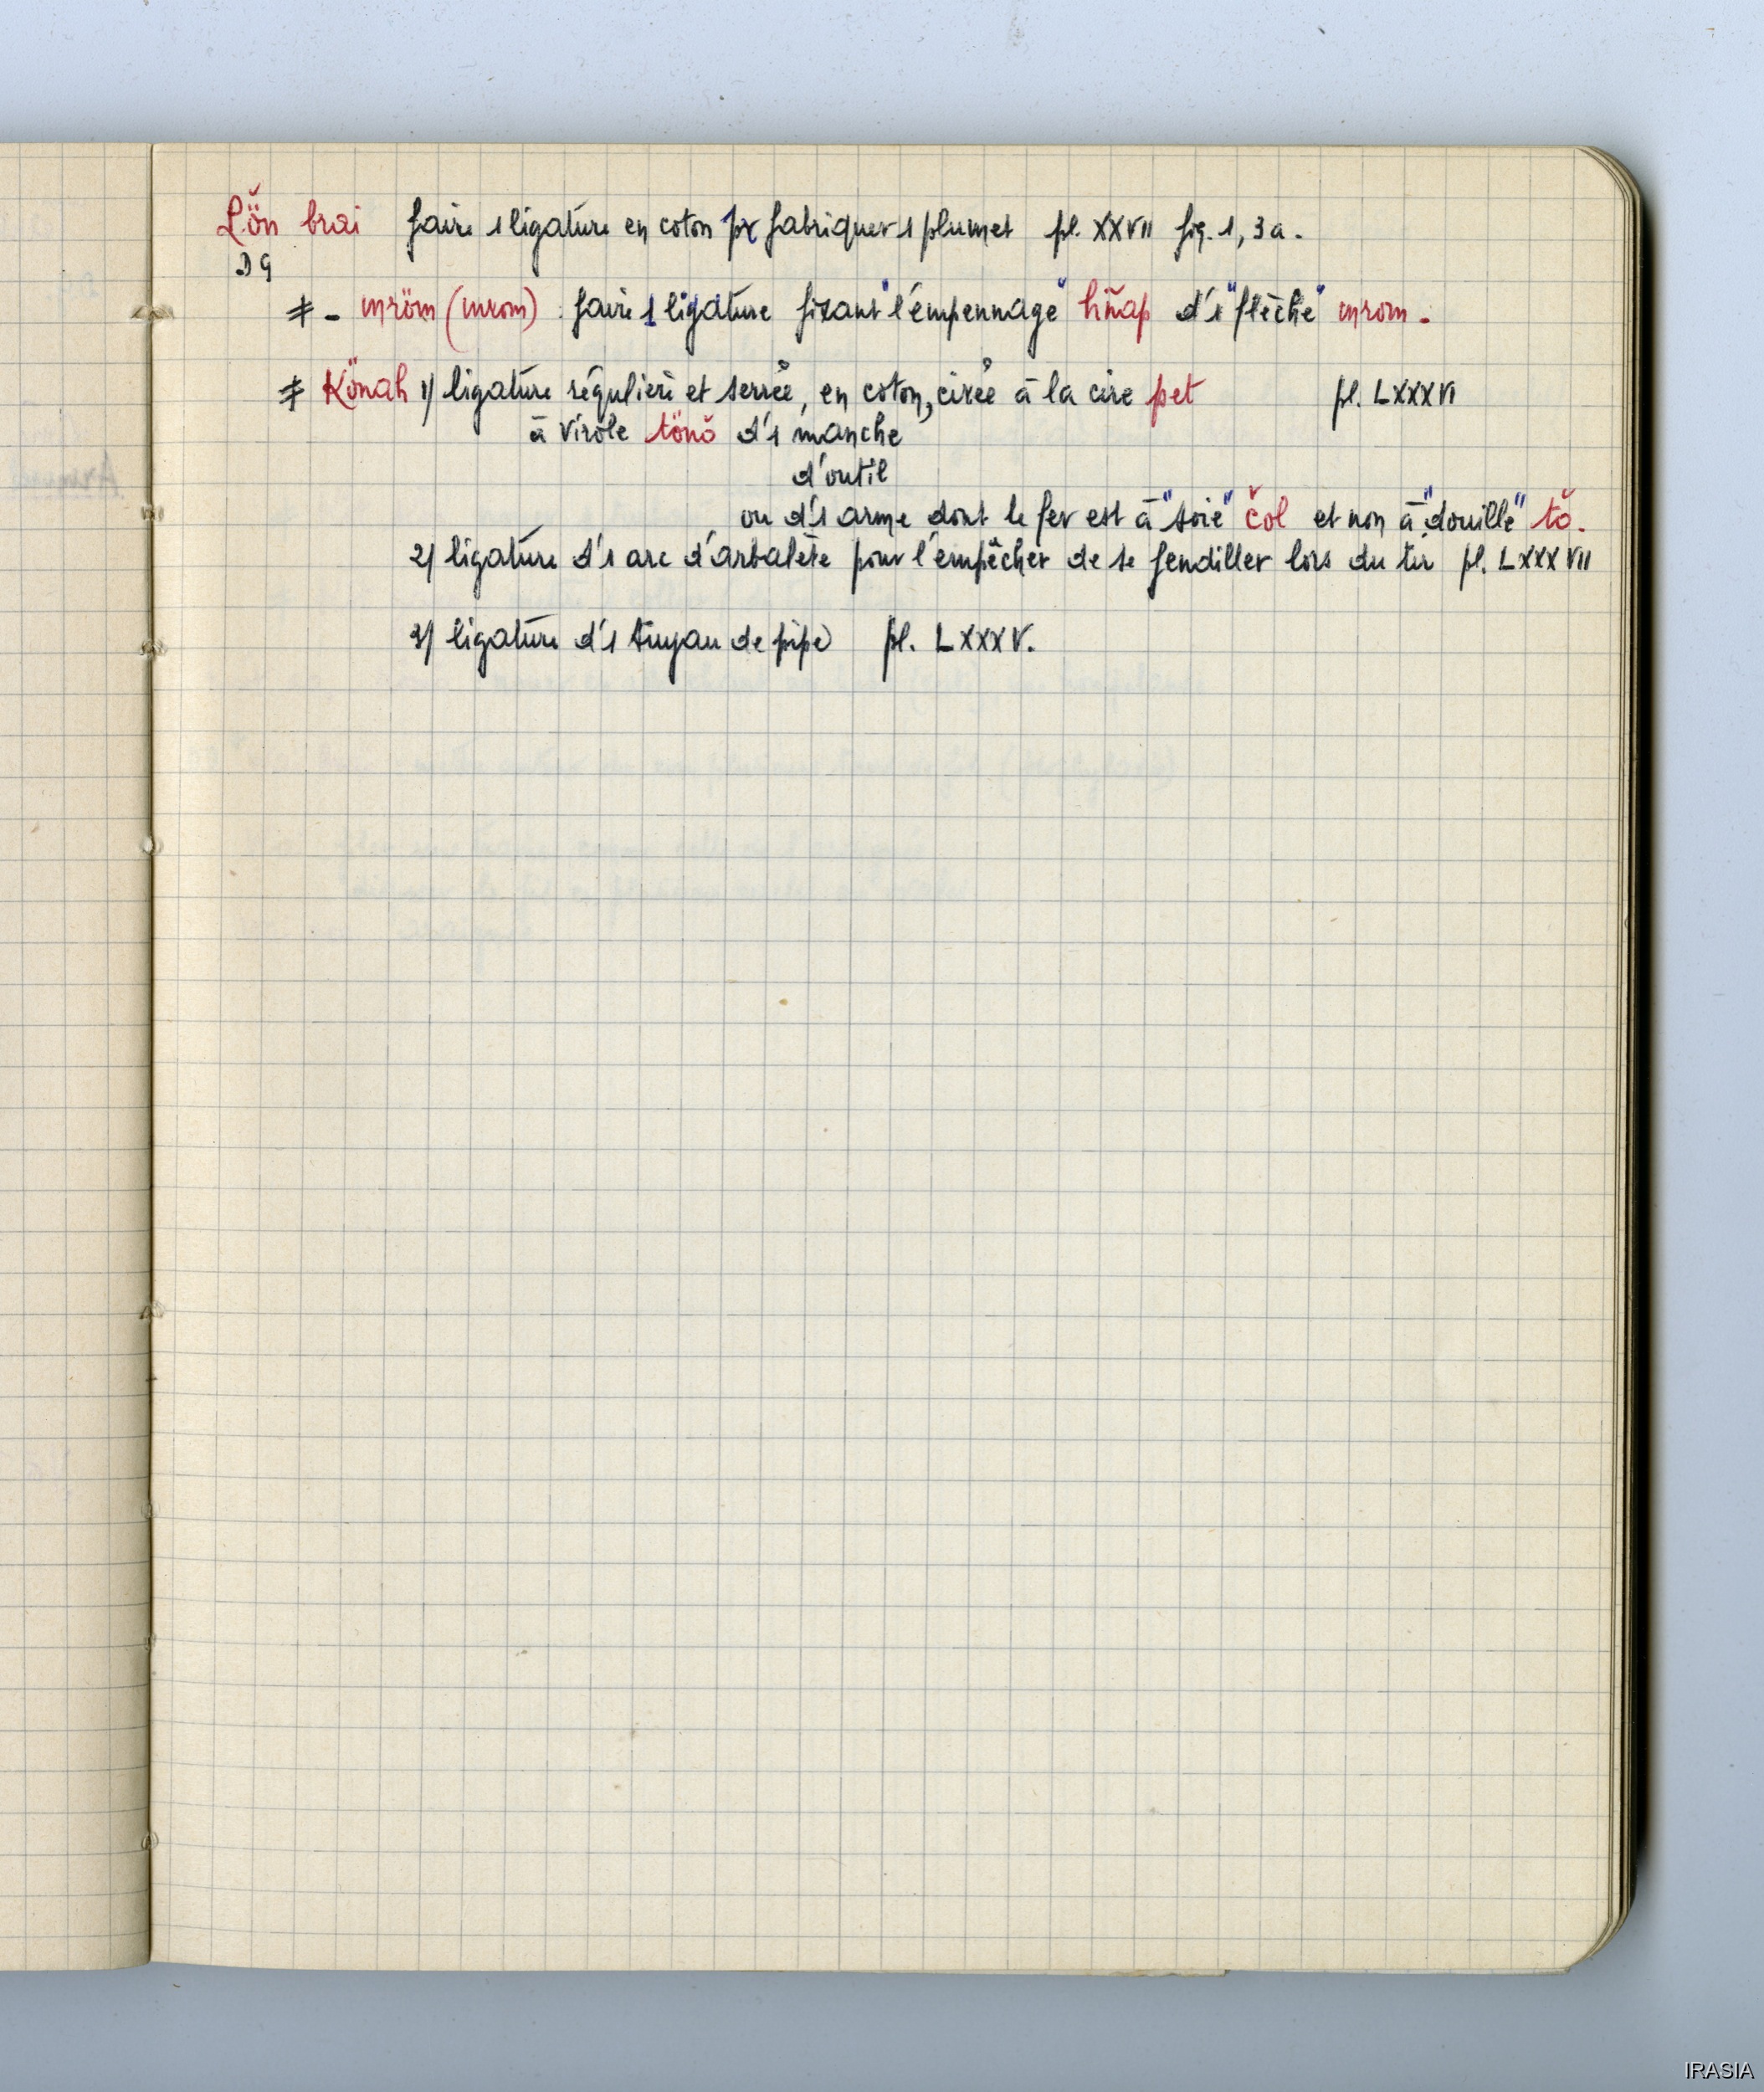 Lö̆n brai faire 1 ligature en coton pr fabriquer 1 plumet pl. XXVII fig. 1, 3a.
D9
≠ - mröm (mrom) : faire 1 ligature fixant "l'empennage" hñap d'1 "flèche" mrom.
≠ Könah 1/ ligature régulière et serrée, en coton, cirée à la cire pet pl. LXXXVI
à virole tönŏ d'1 manche
d'outil
ou d'1 arme dont le fer est à "soie" čŏl et non à "douille" tŏ.
2/ ligature d'1 arc d'arbalète pour l'empêcher de se fendiller lors du tir pl. LXXXVII
3/ ligature d'1 tuyau de pipe pl. LXXXV.
IRASIA